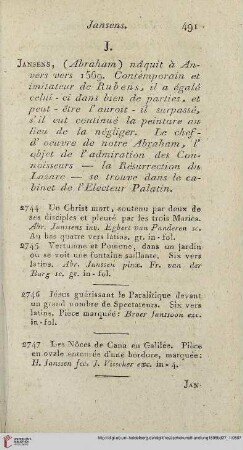 Jansens. 491
J.
Jansens, (Abraham) náquit à An-
vers vers 1569. Contemporain et
imitateur de Rubens, il a égalé
celui-ci dans bien de parties, et
peut-être l'auroit-il surpassé,
s'il eut continué la peinture au
lieu de la négliger. Le chef-
d'oeuvre de notre Abraham, l'
objet de l'admiration des Con-
noisseurs — la Résurrection du
Lazare — se trouve dans le ca-
binet de l'Electeur Palatin.
2744 Un Christ mort, soutenu par deux de
ses disciples et pleuré par les trois Maries.
Abr. Janssens inv. Egbert van Panderen sc.
Au bas quatre vers latins. gr. in-fol.
2745 Vertumne et Pomone, dans un jardin
où se voit une fontaine saillante. Six vers
latins. Abr. Janssen pinx. Fr. van der
Burg sc. gr. in-fol.
2746 Jésus guérissant le Paralitique devant
un grand nombre de Spectateurs. Six vers
latins. Pièce marquée: Broer Jansfoon exc.
in-fol.
2747 Les Nôces de Cana en Galilée. Pièce
en ovale entourée d'une bordure, marquée:
H. Janssen fec. J. Visscher exc. in-4.
JAN-